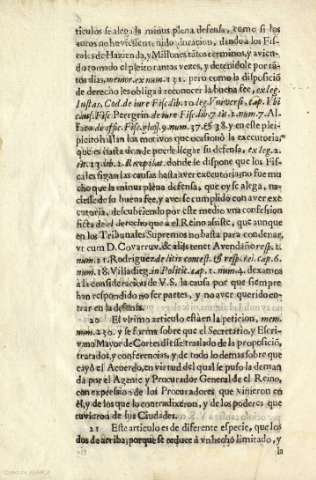 ticulos se alega la minus plena defensa, como si los
autos no huviessen tenido duracion, dandoà los Fis-
cales de Hazienda, y Millones tãtos terminos, y avien-
do tomado el pleito tantas vezes, y detenidole por tã-
tos dias, memor. ex num. 132. pero como la disposiciõ
de derecho les obliga à reconocer la buena fee, ex leg.
Instas. Cod. de iure Fisc. lib. 10. leg. Vniversi. cap. Vbi
caus. Fisc. Peregrin. de iure Fisc. lib. 7. tit. 2. num. 7. Al-
faro de offic. Fisc. glos. 9. num. 37. & 38. y en este plei-
pleito hallan los motivos que ocasionò la executoria,
que es hasta donde puede llegar su defensa, ex leg. 2.
tit. 13. lib. 2. Recopilat. donde se dispone que los Fis-
cales sigan las causas hasta aver executoria; no fue mu-
cho que la minus plena defensa, que oy se alega, na-
ciesse de su buena fee, y averse cumplido con aver exe-
cutoria, descubriendo por este medio vna confession
ficta de el derecho que al Reino assiste, que aunque
en los Tribunales Supremos no basta para condenar,
vt cum D. Covarruv. & alijs tenet Avendaño resp. 1.
num. 21. Rodriguez de litis contest. & resp. rei. cap. 6.
num. 18. Villadieg. in Politic. cap. 1. num. 4. dexamos
à la consideracion de V.S. la causa por que siempre
han respondido no ser partes, y no aver querido en-
trar en la defensa.
20 El vltimo articulo està en la peticion, mem.
num. 230. y se forma sobre que el Secretario, y Escri-
vano Mayor de Cortes diesse traslado de la proposiciõ,
tratados, y conferencias, y de todo lo demas sobre que
cayò el Acuerdo, en virtud del qual se puso la deman
da por el Agente y Procurador General de el Reino,
con expression de los Procuradores que vinieron en
èl, y de los que lo contradixeron, y de los poderes que
tuvieron de sus Ciudades.
21 Este articulo es de diferente especie, que los
dos de arriba; porque se reduce à vn hecho limitado, y